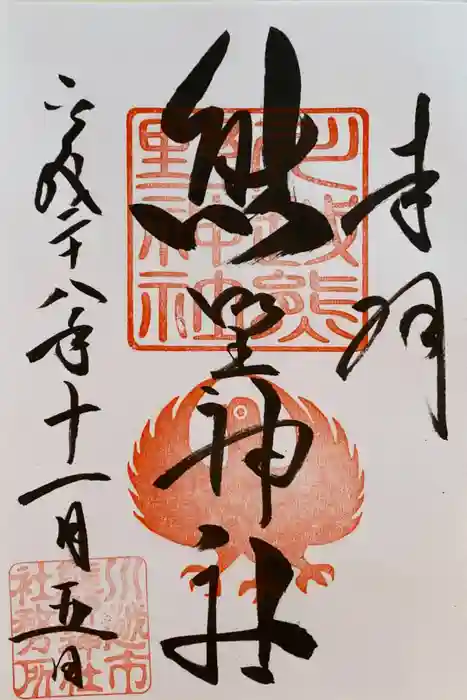 奉拝
熊野神社
平成二十八年十一月五日
川越熊
野神社
川越市
熊野神社
社務所